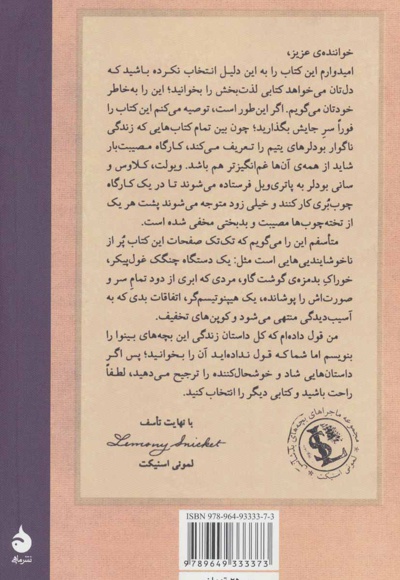 خواننده‌ی عزیز،
امیدوارم این کتاب را به این دلیل انتخاب نکرده باشید که
دل‌تان می‌خواهد کتابی لذت‌بخش را بخوانید؛ این را به‌خاطر
خودتان می‌گویم. اگر این‌طور است، توصیه می‌کنم این کتاب را
فوراً سر جایش بگذارید؛ چون بین تمام کتاب‌هایی که زندگی
ناگوار بودلرهای یتیم را تعریف می‌کند، کارگاه مصیبت‌بار
شاید از همه‌ی آن‌ها غم‌انگیزتر هم باشد. ویولت، کلاوس و
سانی بودلر به پالتری‌ویل فرستاده می‌شوند تا در یک کارگاه
چوب‌بُری کار کنند و خیلی زود متوجه می‌شوند پشت هر یک
از تخته‌چوب‌ها مصیبت و بدبختی مخفی شده است.
متأسفم این را می‌گویم که تک‌تک صفحات این کتاب پُر از
ناخوشایندیی‌هایی است مثل: یک دستگاه چنگک غول‌پیکر،
خوراک بدمزه‌ی گوشت گاو، مردی که ابری از دود تمام سر و
صورت‌اش را پوشانده، یک هیپنوتیسم‌گر، اتفاقات بدی که به
آسیب‌دیدگی منتهی می‌شود و کوپن‌های تخفیف.
من قول داده‌ام که کل داستان زندگی این بچه‌های بینوا را
بنویسم اما شما که قول نداده‌اید آن را بخوانید؛ پس اگر
داستان‌هایی شاد و خوشحال‌کننده را ترجیح می‌دهید، لطفاً
راحت باشید و کتابی دیگر را انتخاب کنید.
با نهایت تأسف
Lemony Snicket
لمونی اسنیکت
مجموعه ماجراهای بچه‌های بدشانس
لمونی اسنیکت
ISBN 978-964-93333-7-3
9789649333373
نشر ماهی